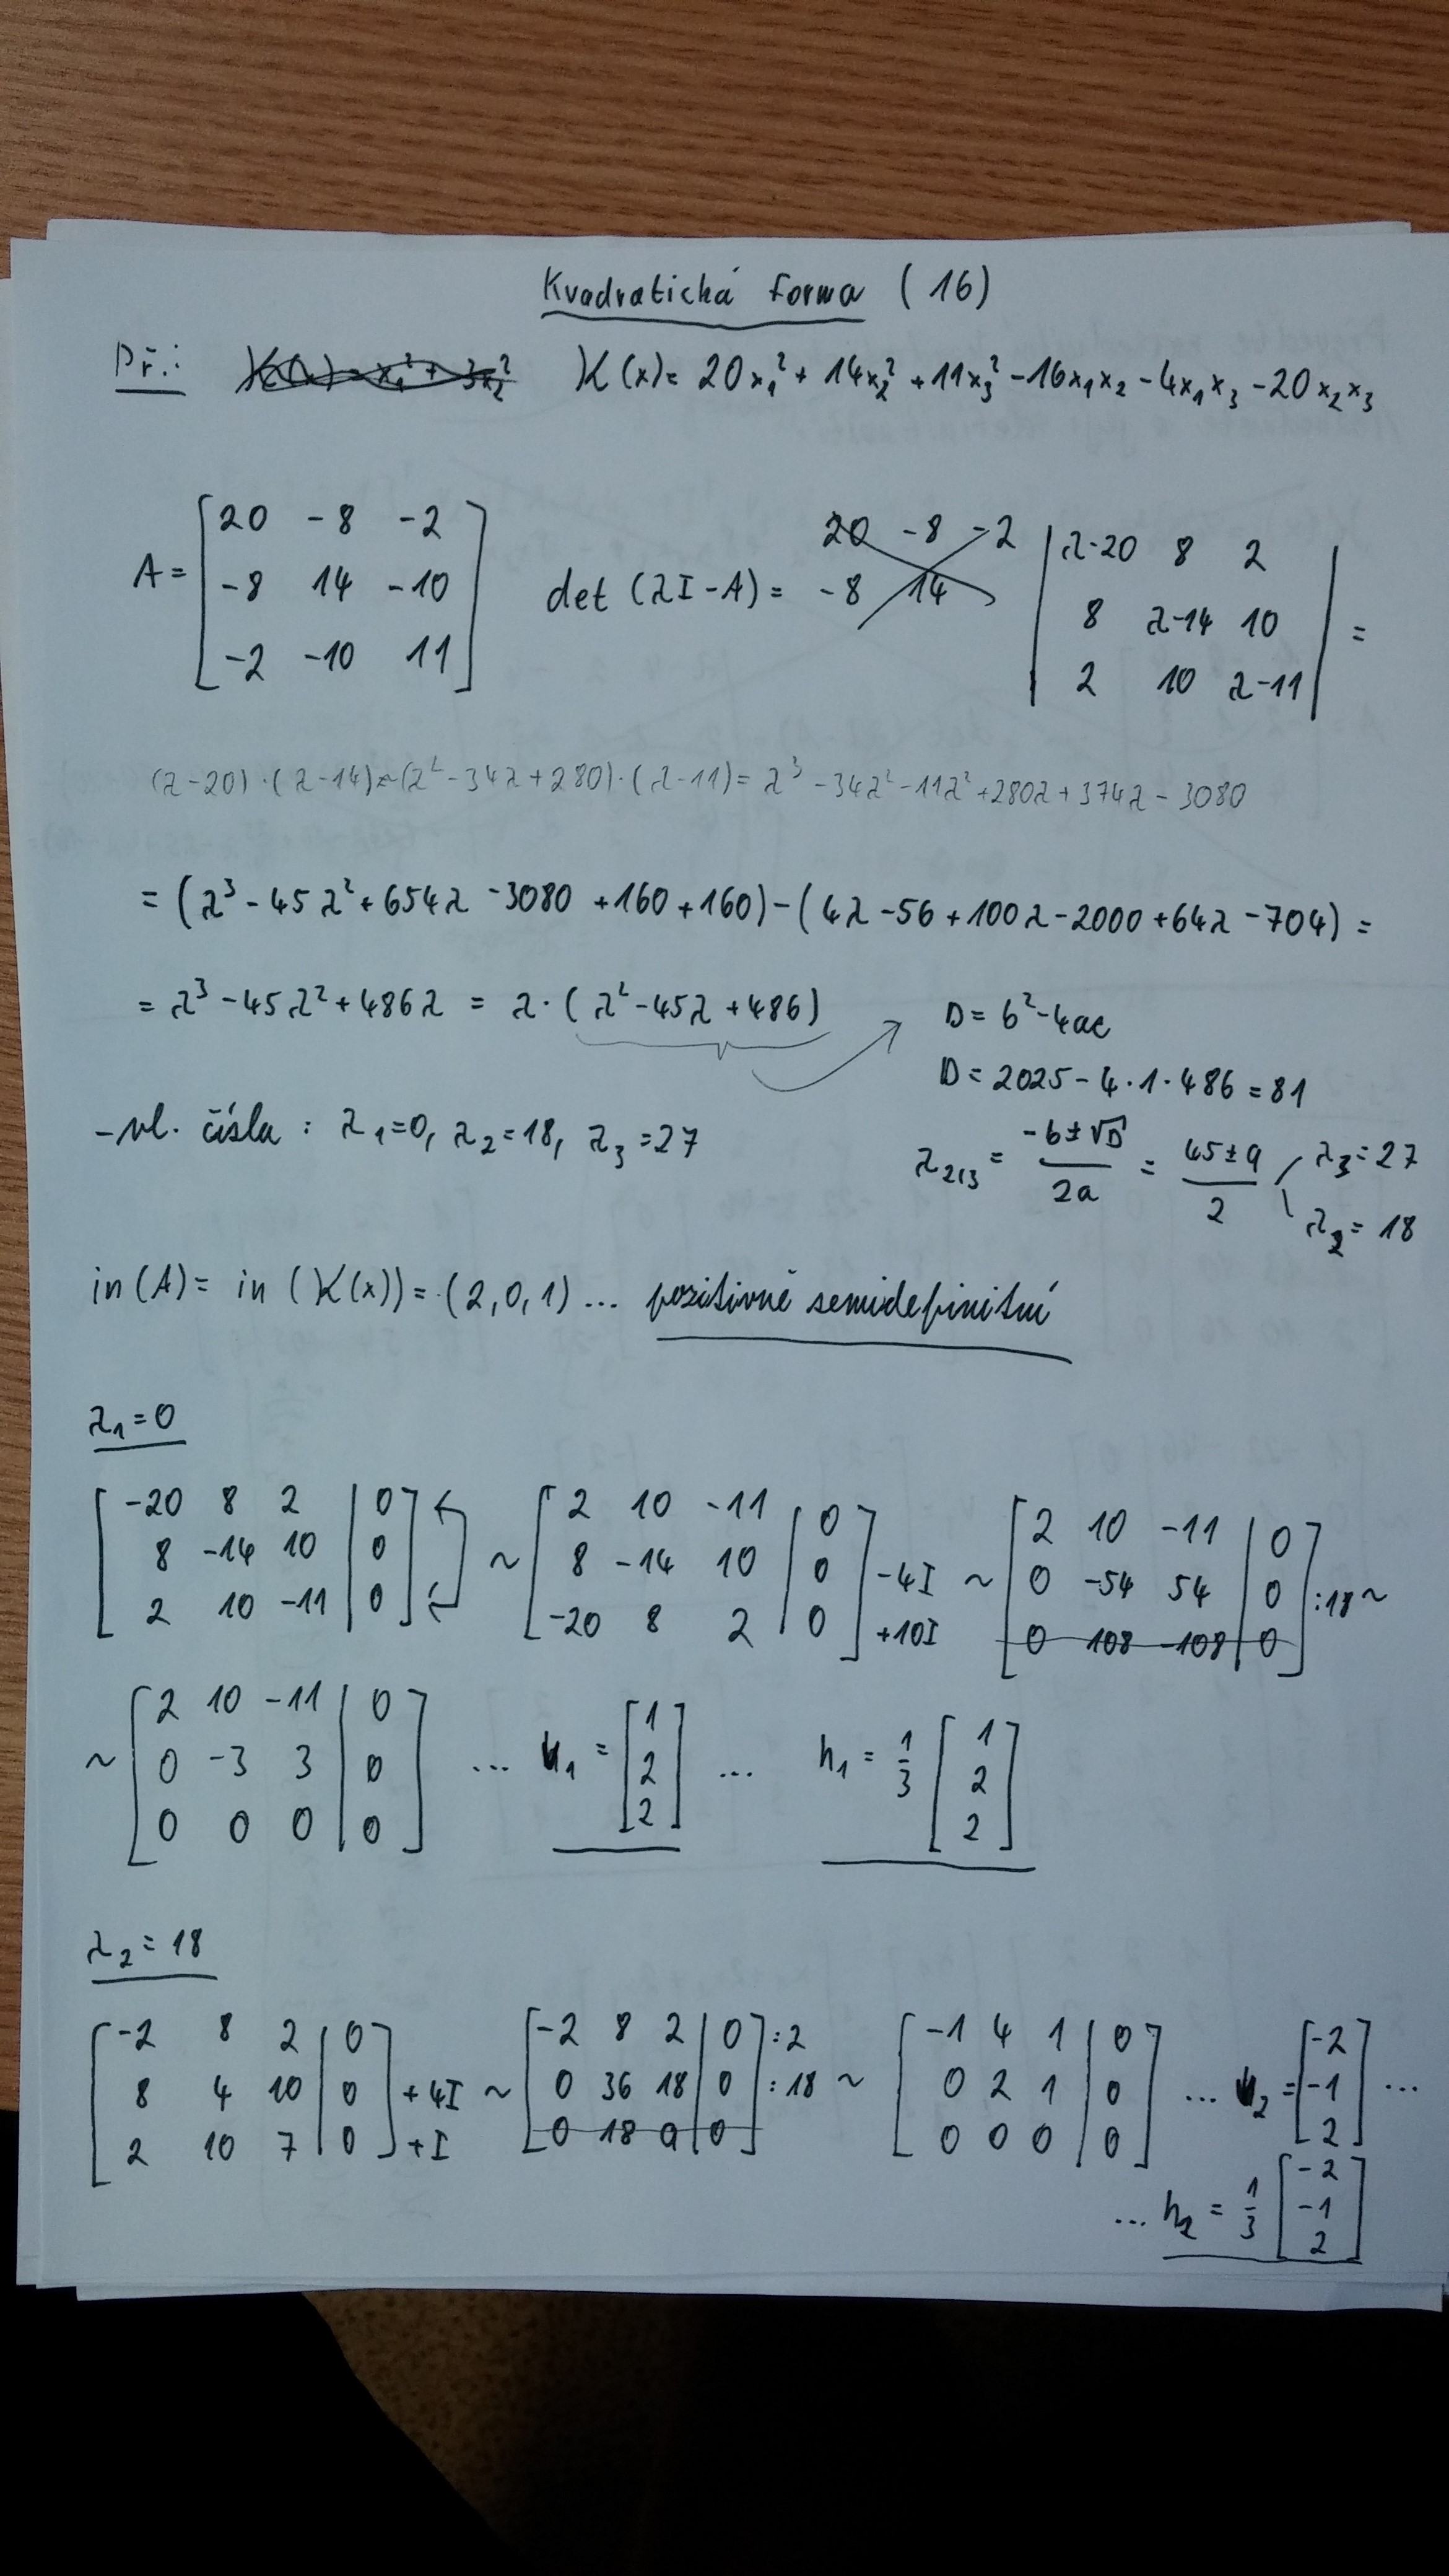 Kvadratická forma (16)
Př.: K(x) = x₁² + 3x₂² K(x) = 20x₁² + 14x₂² + 11x₃² - 16x₁x₂ - 4x₁x₃ - 20x₂x₃
A = [20 -8 -2; -8 14 -10; -2 -10 11] det (λI-A) = 20 -8 -2; -8 14 |λ-20 8 2; 8 λ-14 10; 2 10 λ-11| =
(λ-20)·(λ-14) = (λ²-34λ+280)·(λ-11) = λ³ - 34λ² - 11λ² + 280λ + 374λ - 3080
= (λ³ - 45λ² + 654λ - 3080 + 160 + 160) - (4λ - 56 + 100λ - 2000 + 64λ - 704) =
= λ³ - 45λ² + 486λ = λ·(λ² - 45λ + 486) D = b² - 4ac
D = 2025 - 4·1·486 = 81
- vl. čísla : λ₁=0, λ₂=18, λ₃=27
λ₂,₃ = (-b ± √D)/2a = (45 ± 9)/2 λ₃ = 27 λ₂ = 18
in(A) = in(K(x)) = (2,0,1) ... pozitivně semidefinitní
λ₁=0
[-20 8 2 | 0; 8 -14 10 | 0; 2 10 -11 | 0] ~ [2 10 -11 | 0; 8 -14 10 | 0; -20 8 2 | 0] -4I +10I ~ [2 10 -11 | 0; 0 -54 54 | 0; 0 108 -108 | 0] :18 ~
~ [2 10 -11 | 0; 0 -3 3 | 0; 0 0 0 | 0] ... u₁ = [1; 2; 2] ... h₁ = 1/3 [1; 2; 2]
λ₂=18
[-2 8 2 | 0; 8 4 10 | 0; 2 10 7 | 0] +4I +I ~ [-2 8 2 | 0; 0 36 18 | 0; 0 18 9 | 0] :2 :18 ~ [-1 4 1 | 0; 0 2 1 | 0; 0 0 0 | 0] ... u₂ = [-2; -1; 2] ...
... h₂ = 1/3 [-2; -1; 2]